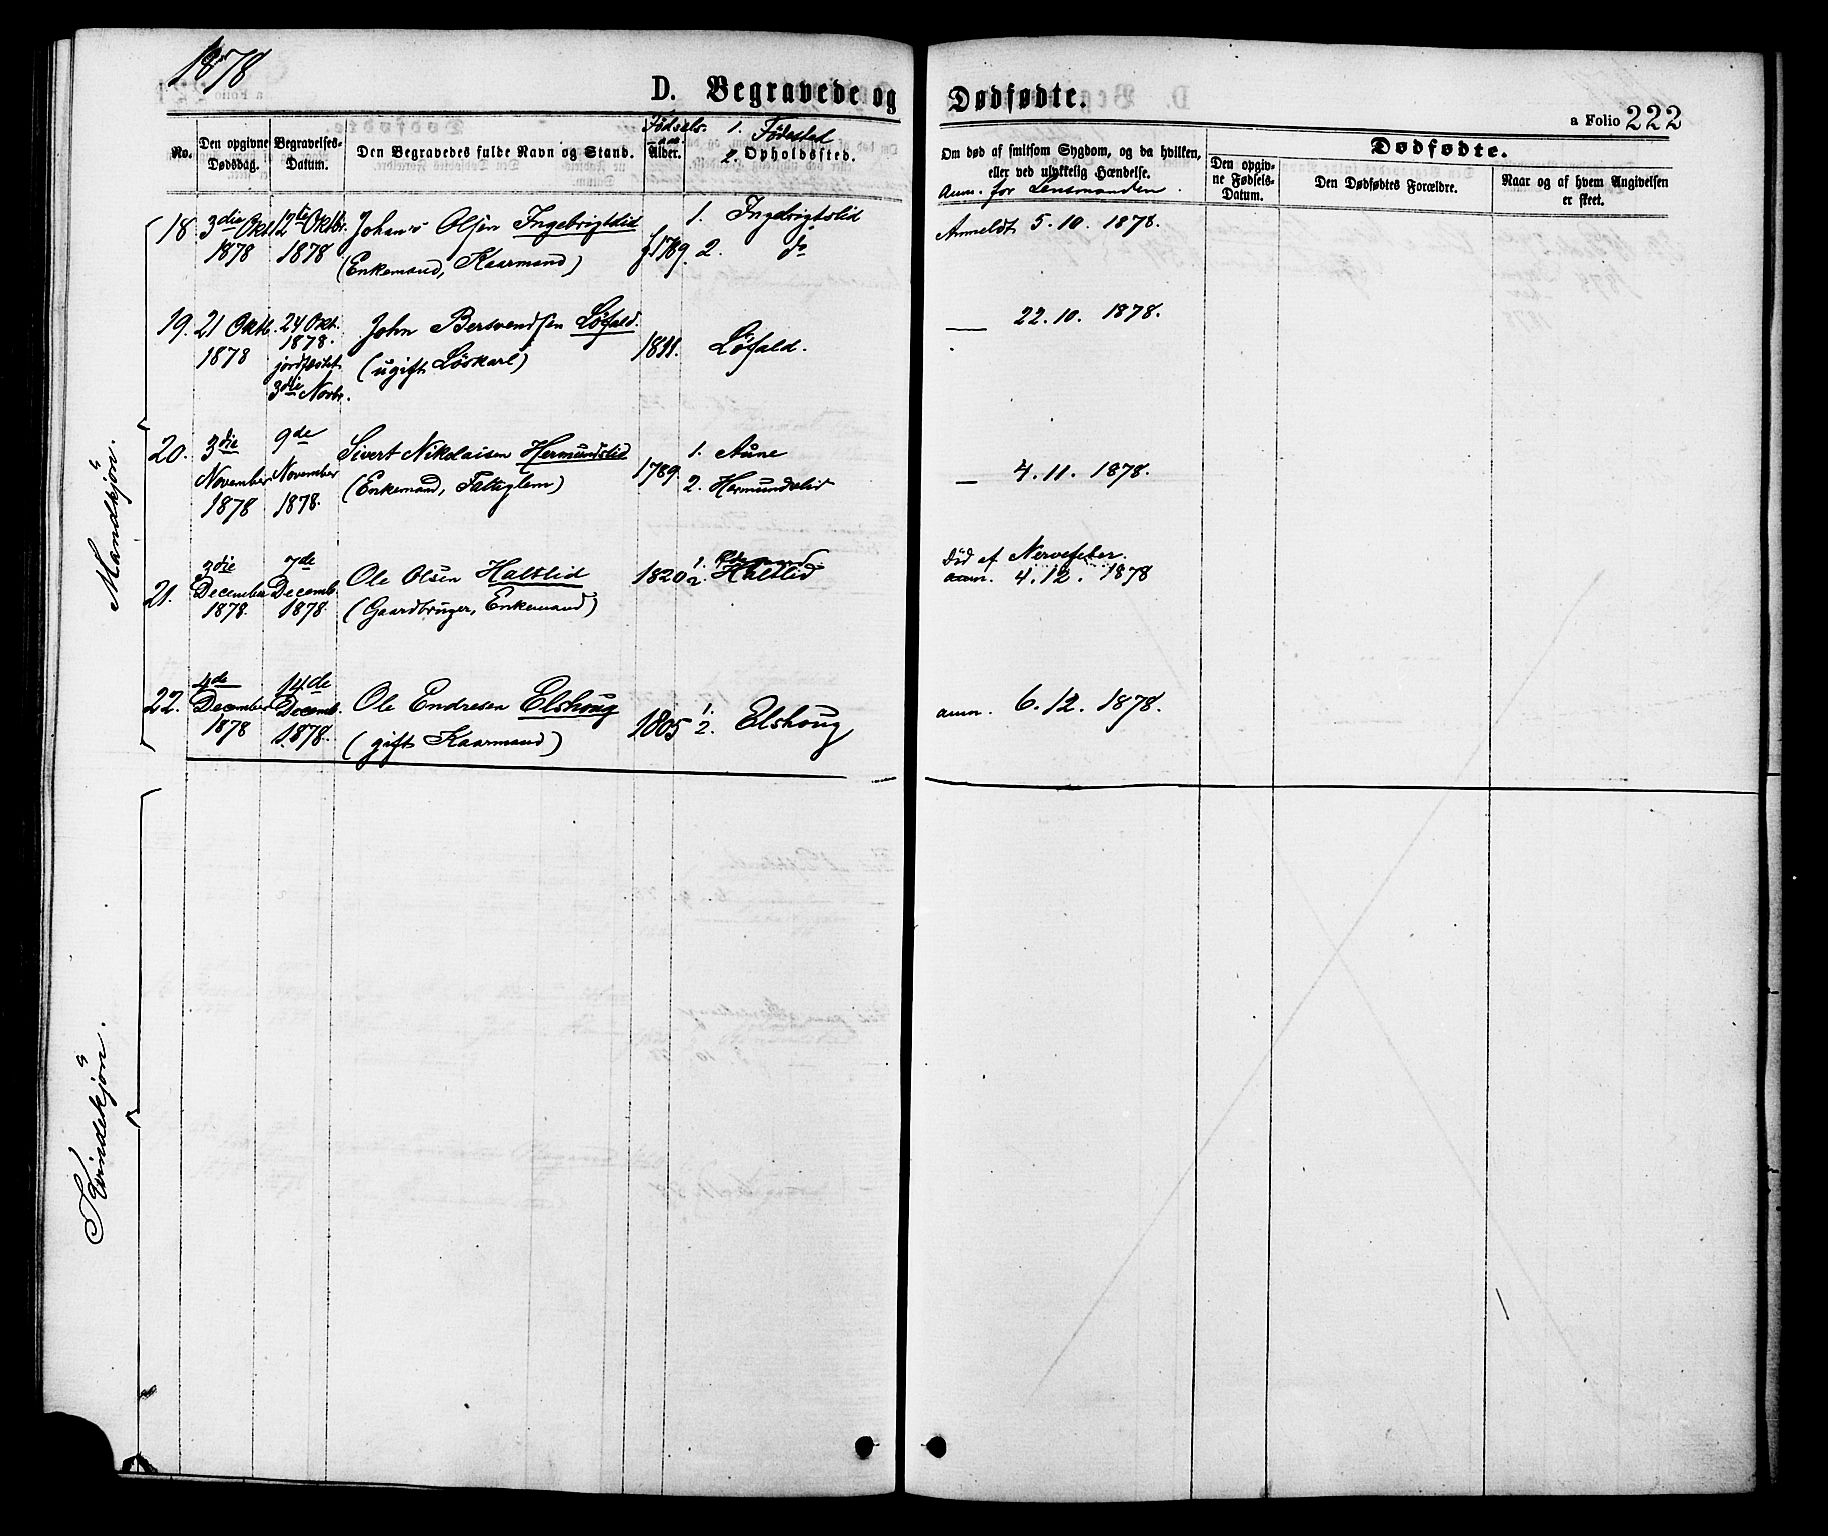 1878
D. Begravede og Dødfødte.
a Folio 222
No.
Den opgivne Dødsdag.
Begravelses-Datum.
Den Begravedes fulde Navn og Stand.
Fødsels-aar Alder.
1. Fødested
2. Opholdssted.
Om død af smitsom Sygdom, og da hvilken,
eller ved ulykkelig Hændelse.
anm. for Lensmanden.
Dødfødte.
Den opgivne Fødsels-Datum.
Den Dødfødtes Forældre.
Naar og af hvem Angivelsen er skeet.
Mandkjön.
18 3die Okt. 12te Oktbr. Johan's Olsen Ingebrigtslid 1. Ingebrigtslid Anmeldt 5.10. 1878.
1878 1878 (Enkemand, Kaarmand) f. 1789. 2. do
19. 21 Oktb. 24 Okt. John Bersvendsen Løfald. 22.10. 1878.
1878 1878. (ugift Löskarl) 1811. Løfald.
jordfæstet
3die Novbr.
20. 3die 9de Sivert Nikolaisen Hermundslid 1. Aune
November November (Enkemand, Fattiglem) 1789. 2. Hermundslid — 4.11. 1878.
1878 1878.
21. 3die 7de Ole Olsen Haltlid 1820 1. 2. Haltlid Död af Nervefeber.
December Decemb. (Gaardbruger, Enkemand) anm. 4.12. 1878
1878. 1878
22. 4de 14de Ole Endresen Elshoug 1805 1. 2. Elshoug anm. 6.12. 1878.
December Decemb. (gift Kaarmand)
1878 1878.
Kvindekjön.